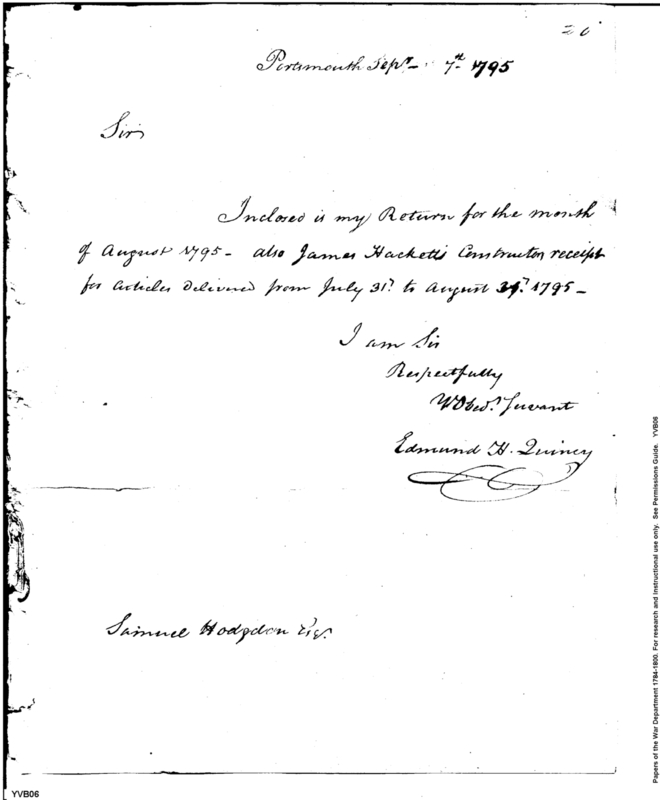 20
Portsmouth Sepr - 7th 1795
Sir
Inclosed is my Return for the month
of August 1795 - also James Hackett's Constructor receipt
for articles Delivered from July 31t to August 31t 1795 -
I am Sir
Respectfully
Yr Obedt Servant
Edmund H. Quincy
Samuel Hodgdon Esqr.
YVB06
Papers of the War Department 1784-1800. For research and instructional use only. See Permissions Guide. YVB06